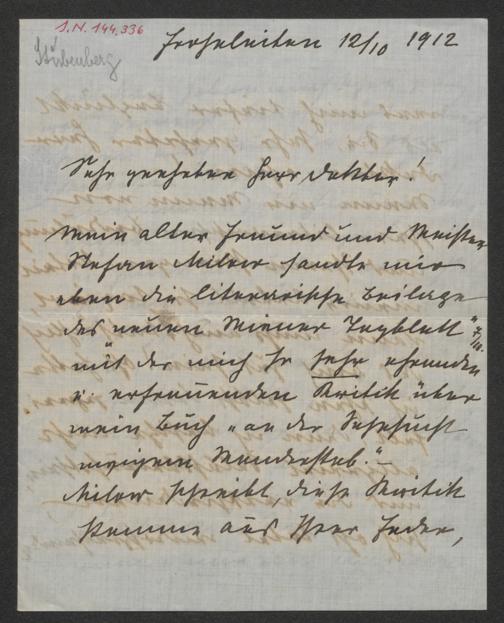 I.N. 144.336
Stubenberg
Frohnleiten 12/10 1912
Sehr geehrter Herr Doktor!
Mein alter Freund und Meister
Stefan Milow sandte mir
eben die literarische Beilage
des neuen Wiener Tagblatt" 7/10.
mit der mich so sehr ehrenden
u. erfreuenden Kritik über
mein Buch „an der Sehnsucht
ewigem Wanderstab." –
Milow schreibt, diese Kritik
stamme aus Ihrer Feder,